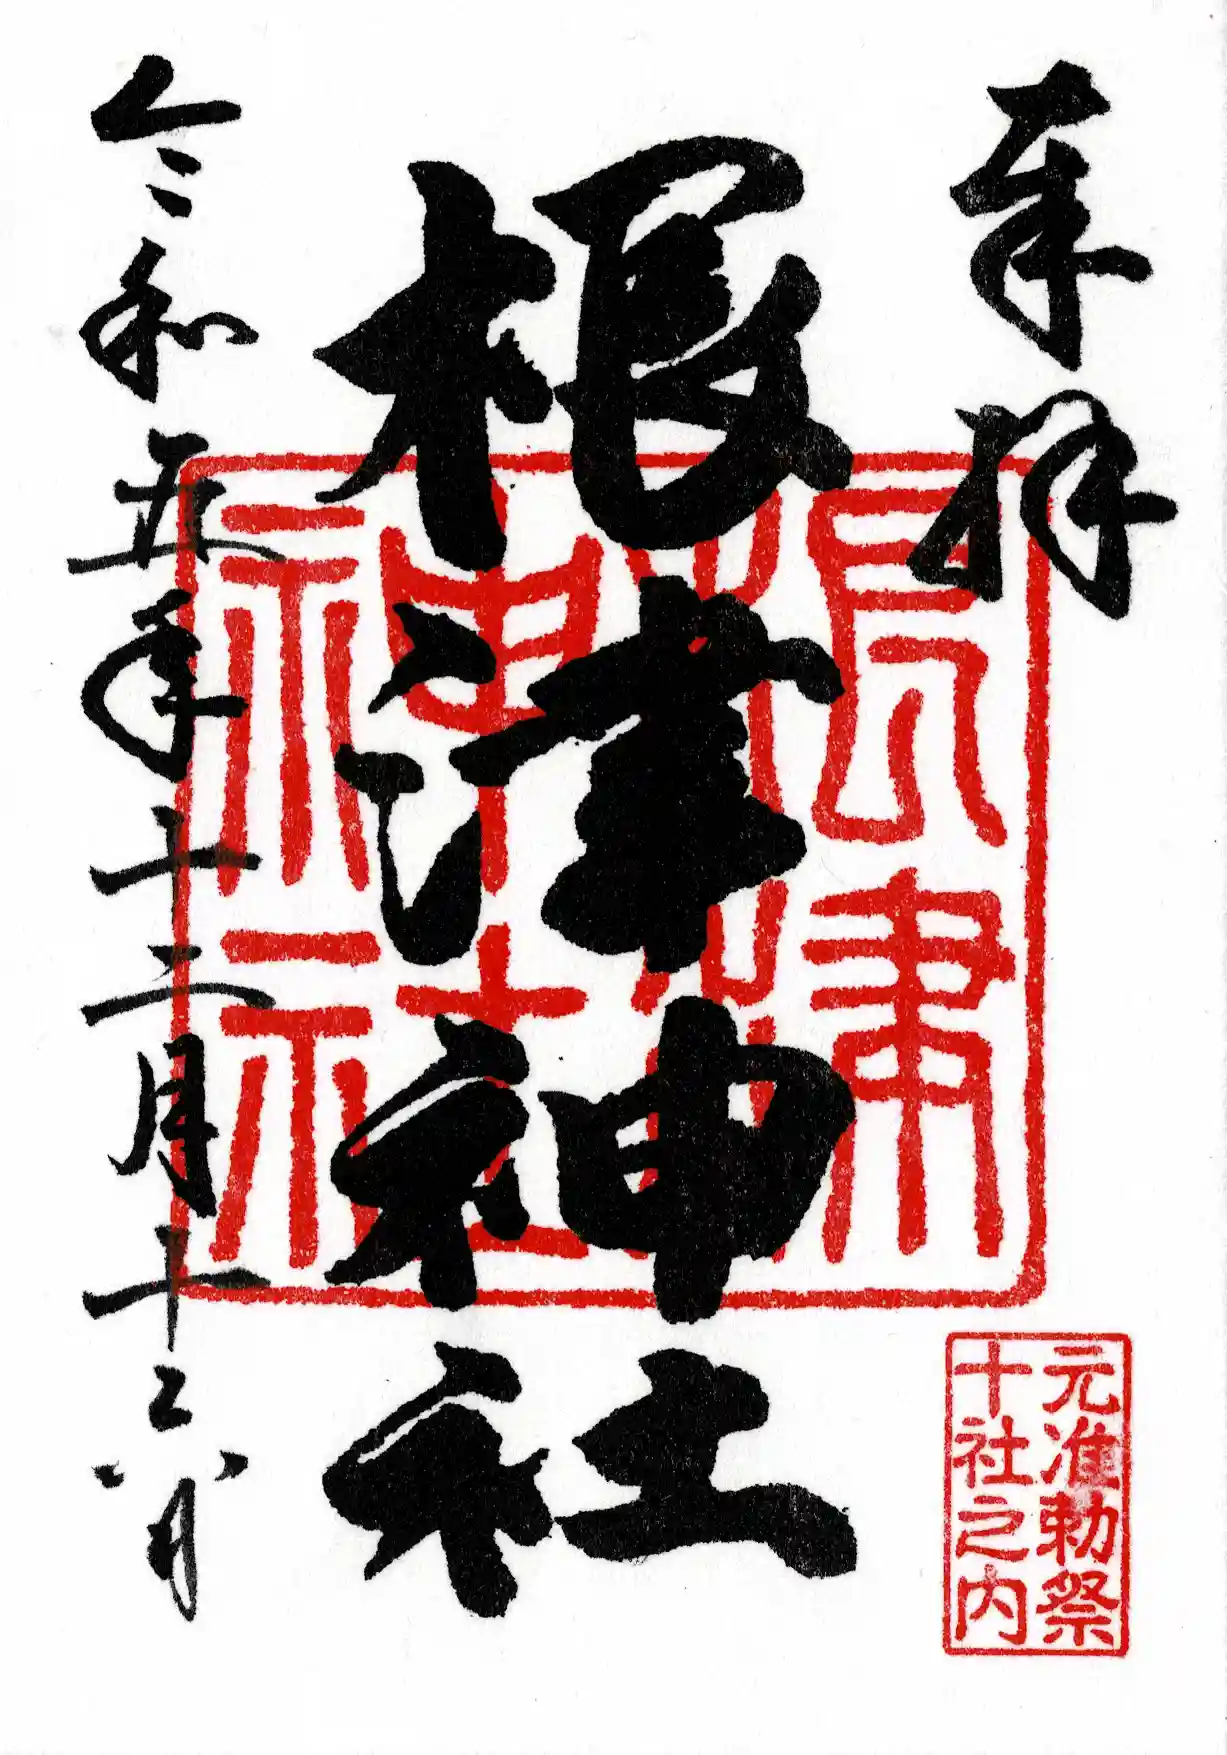 奉拝
根津神社
令和五年十二月十六日
根津
神社
元准勅祭
十社之内